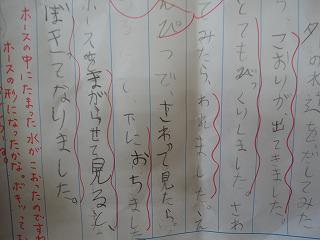 夕の水道をだしてみた
うこおりが出てきました。
とてもびっくりしました。さわ
てみたら、われました。え
んぴつで、さわって見たら、
下におちまし
ホースをまがらせて見ると、
ぼきってなりました。
ホースの中にたまった水がこおったのですね
ホースの形になったかな。ボキッってお